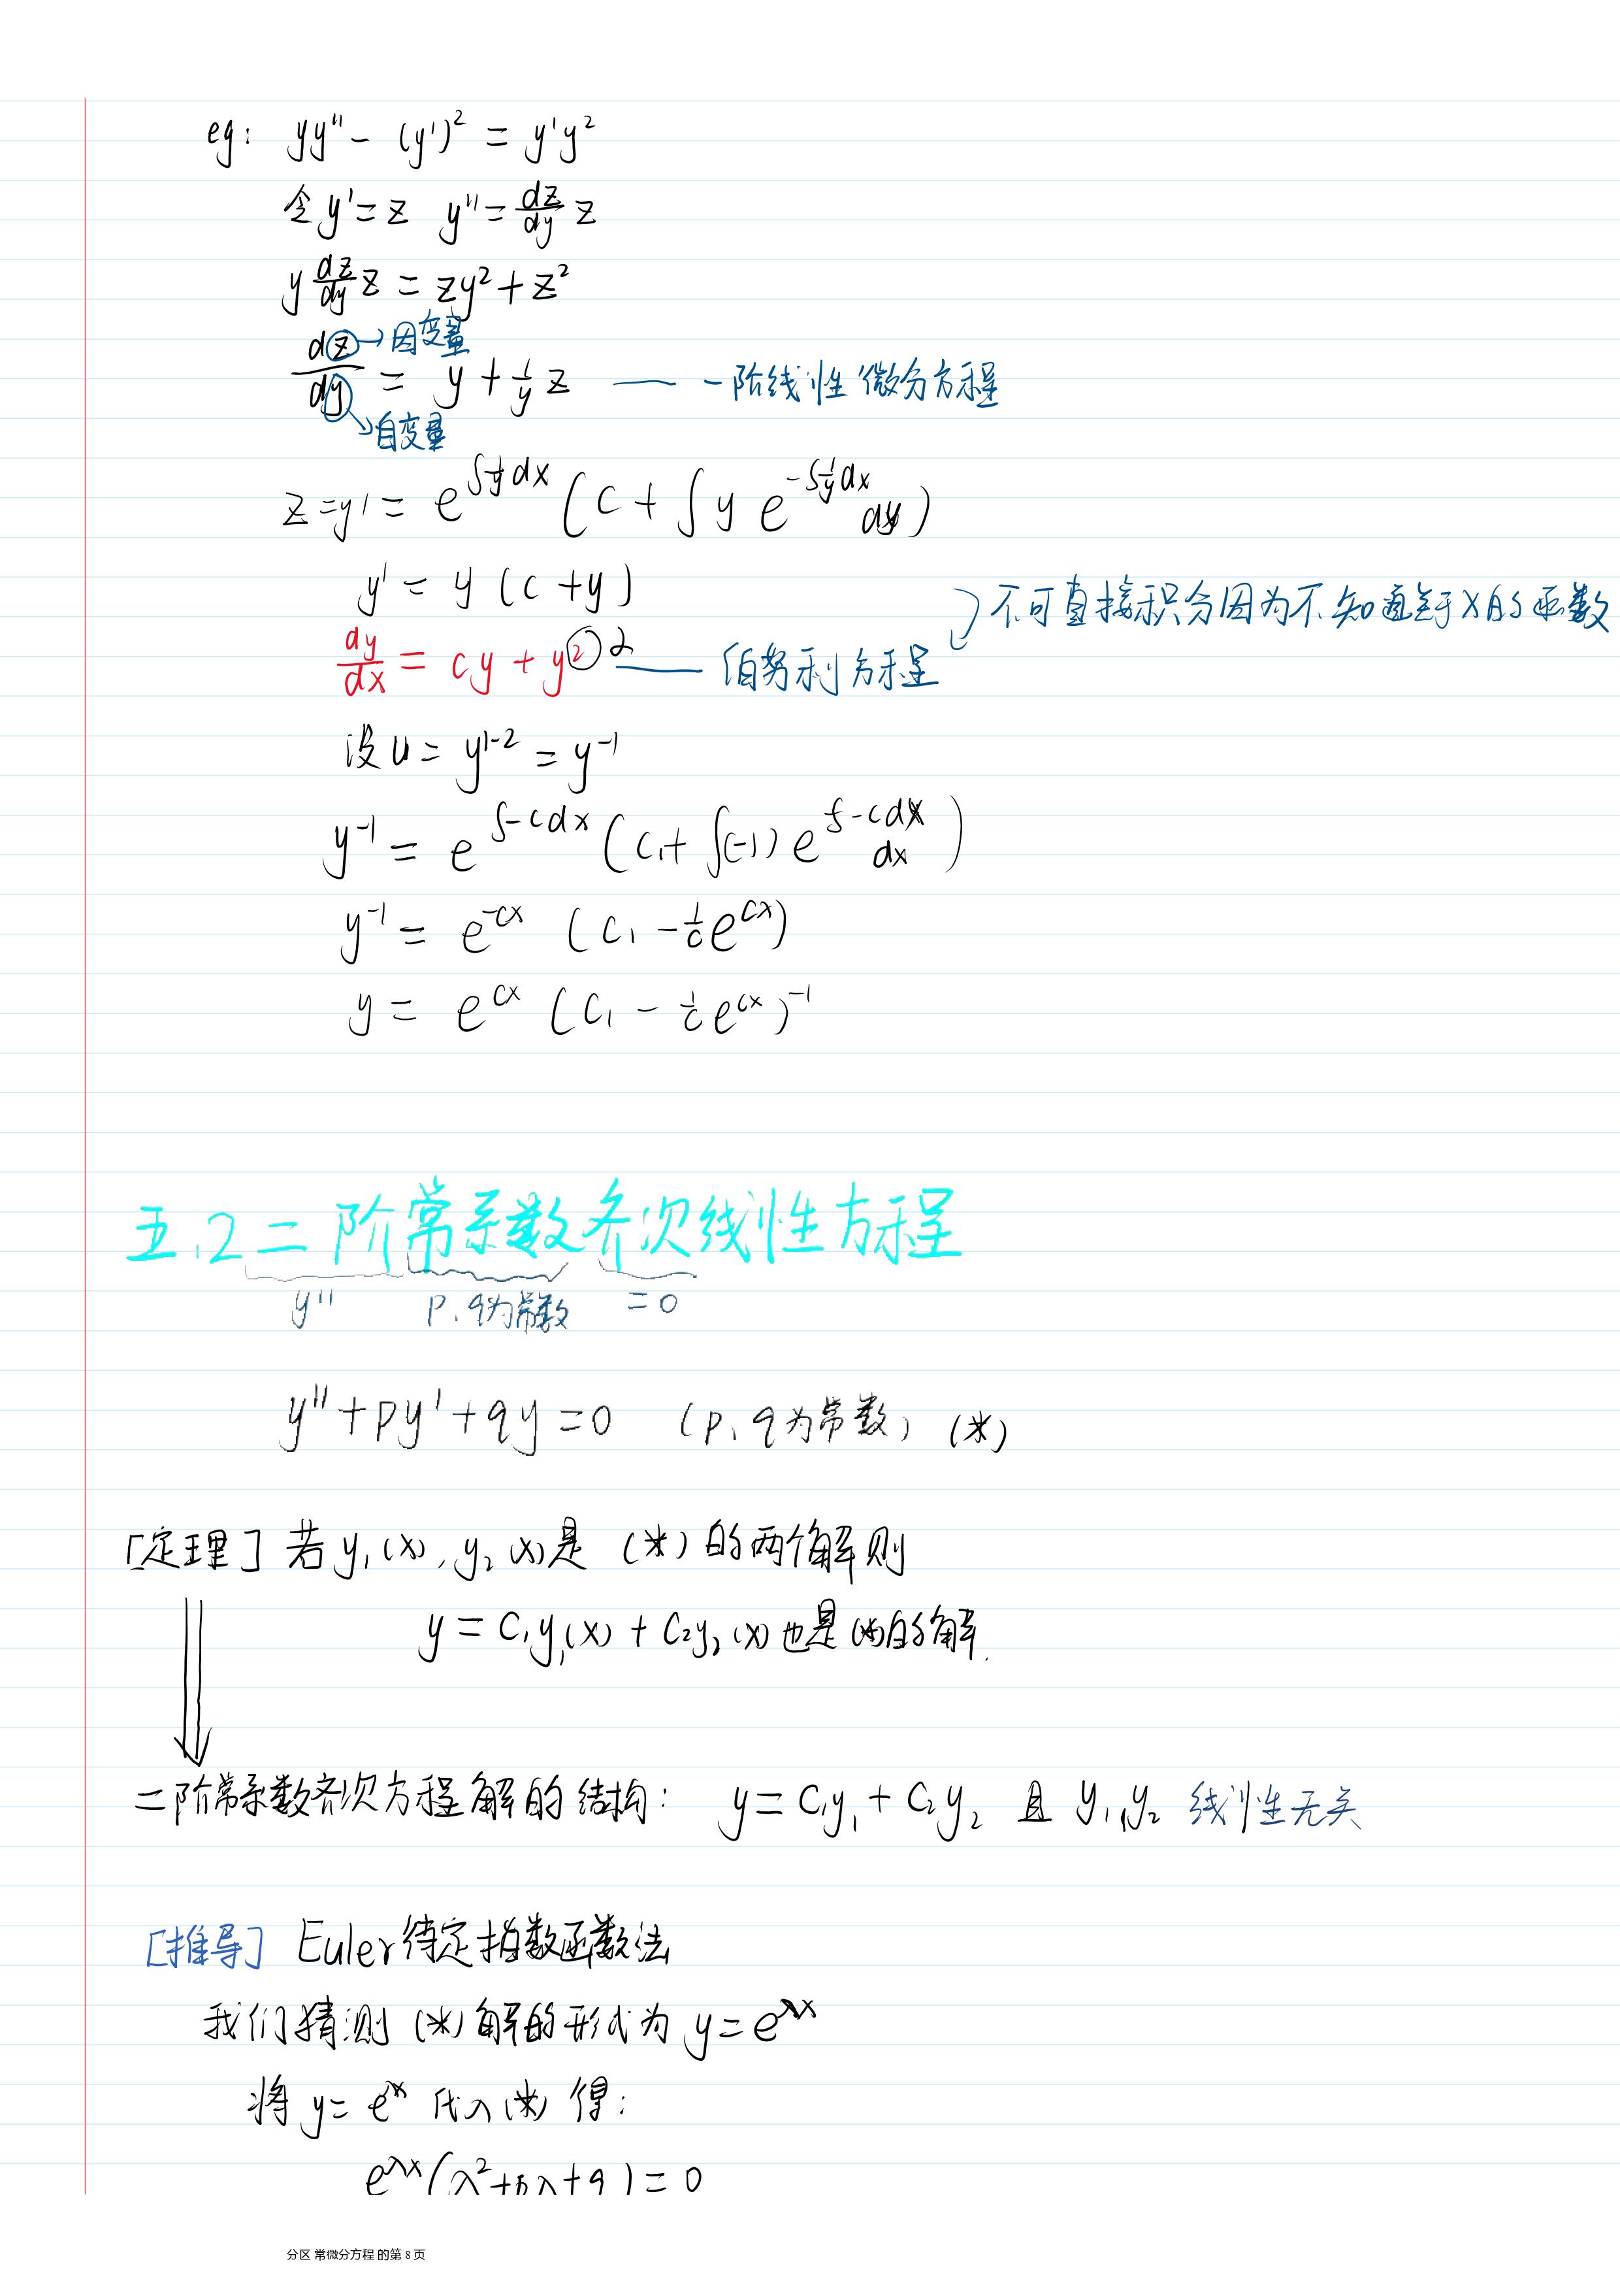 eg: yy'' - (y')² = y'y²
令 y' = z  y'' = dz/dy z
y dz/dy z = zy² + z²
dz/dy = y + 1/y z —— 一阶线性微分方程
→因变量
→自变量
z = y' = e^{∫1/y dx} (C + ∫ y e^{-∫1/y dx} dy)
y' = y (C + y)
不可直接积分因为不知道y关于x的函数
dy/dx = cy + y² α —— 伯努利方程
设 u = y^{1-2} = y^{-1}
y^{-1} = e^{∫-c dx} (C₁ + ∫(-1) e^{∫-c dx} dx)
y^{-1} = e^{-cx} (C₁ - 1/c e^{cx})
y = e^{cx} (C₁ - 1/c e^{cx})^{-1}
五.2 二阶常系数齐次线性方程
y''  p、q为常数  = 0
y'' + py' + qy = 0 (p、q为常数) (*)
[定理] 若 y₁(x), y₂(x)是 (*) 的两个解则
y = C₁y₁(x) + C₂y₂(x) 也是(*)的解.
二阶常系数齐次方程解的结构: y = C₁y₁ + C₂y₂ 且 y₁,y₂ 线性无关
[推导] Euler待定指数函数法
我们猜测 (*) 解的形式为 y = e^{λx}
将 y = e^{x} 代入(*) 得:
e^{λx}(λ² + pλ + q) = 0
分区 常微分方程 的第 8 页